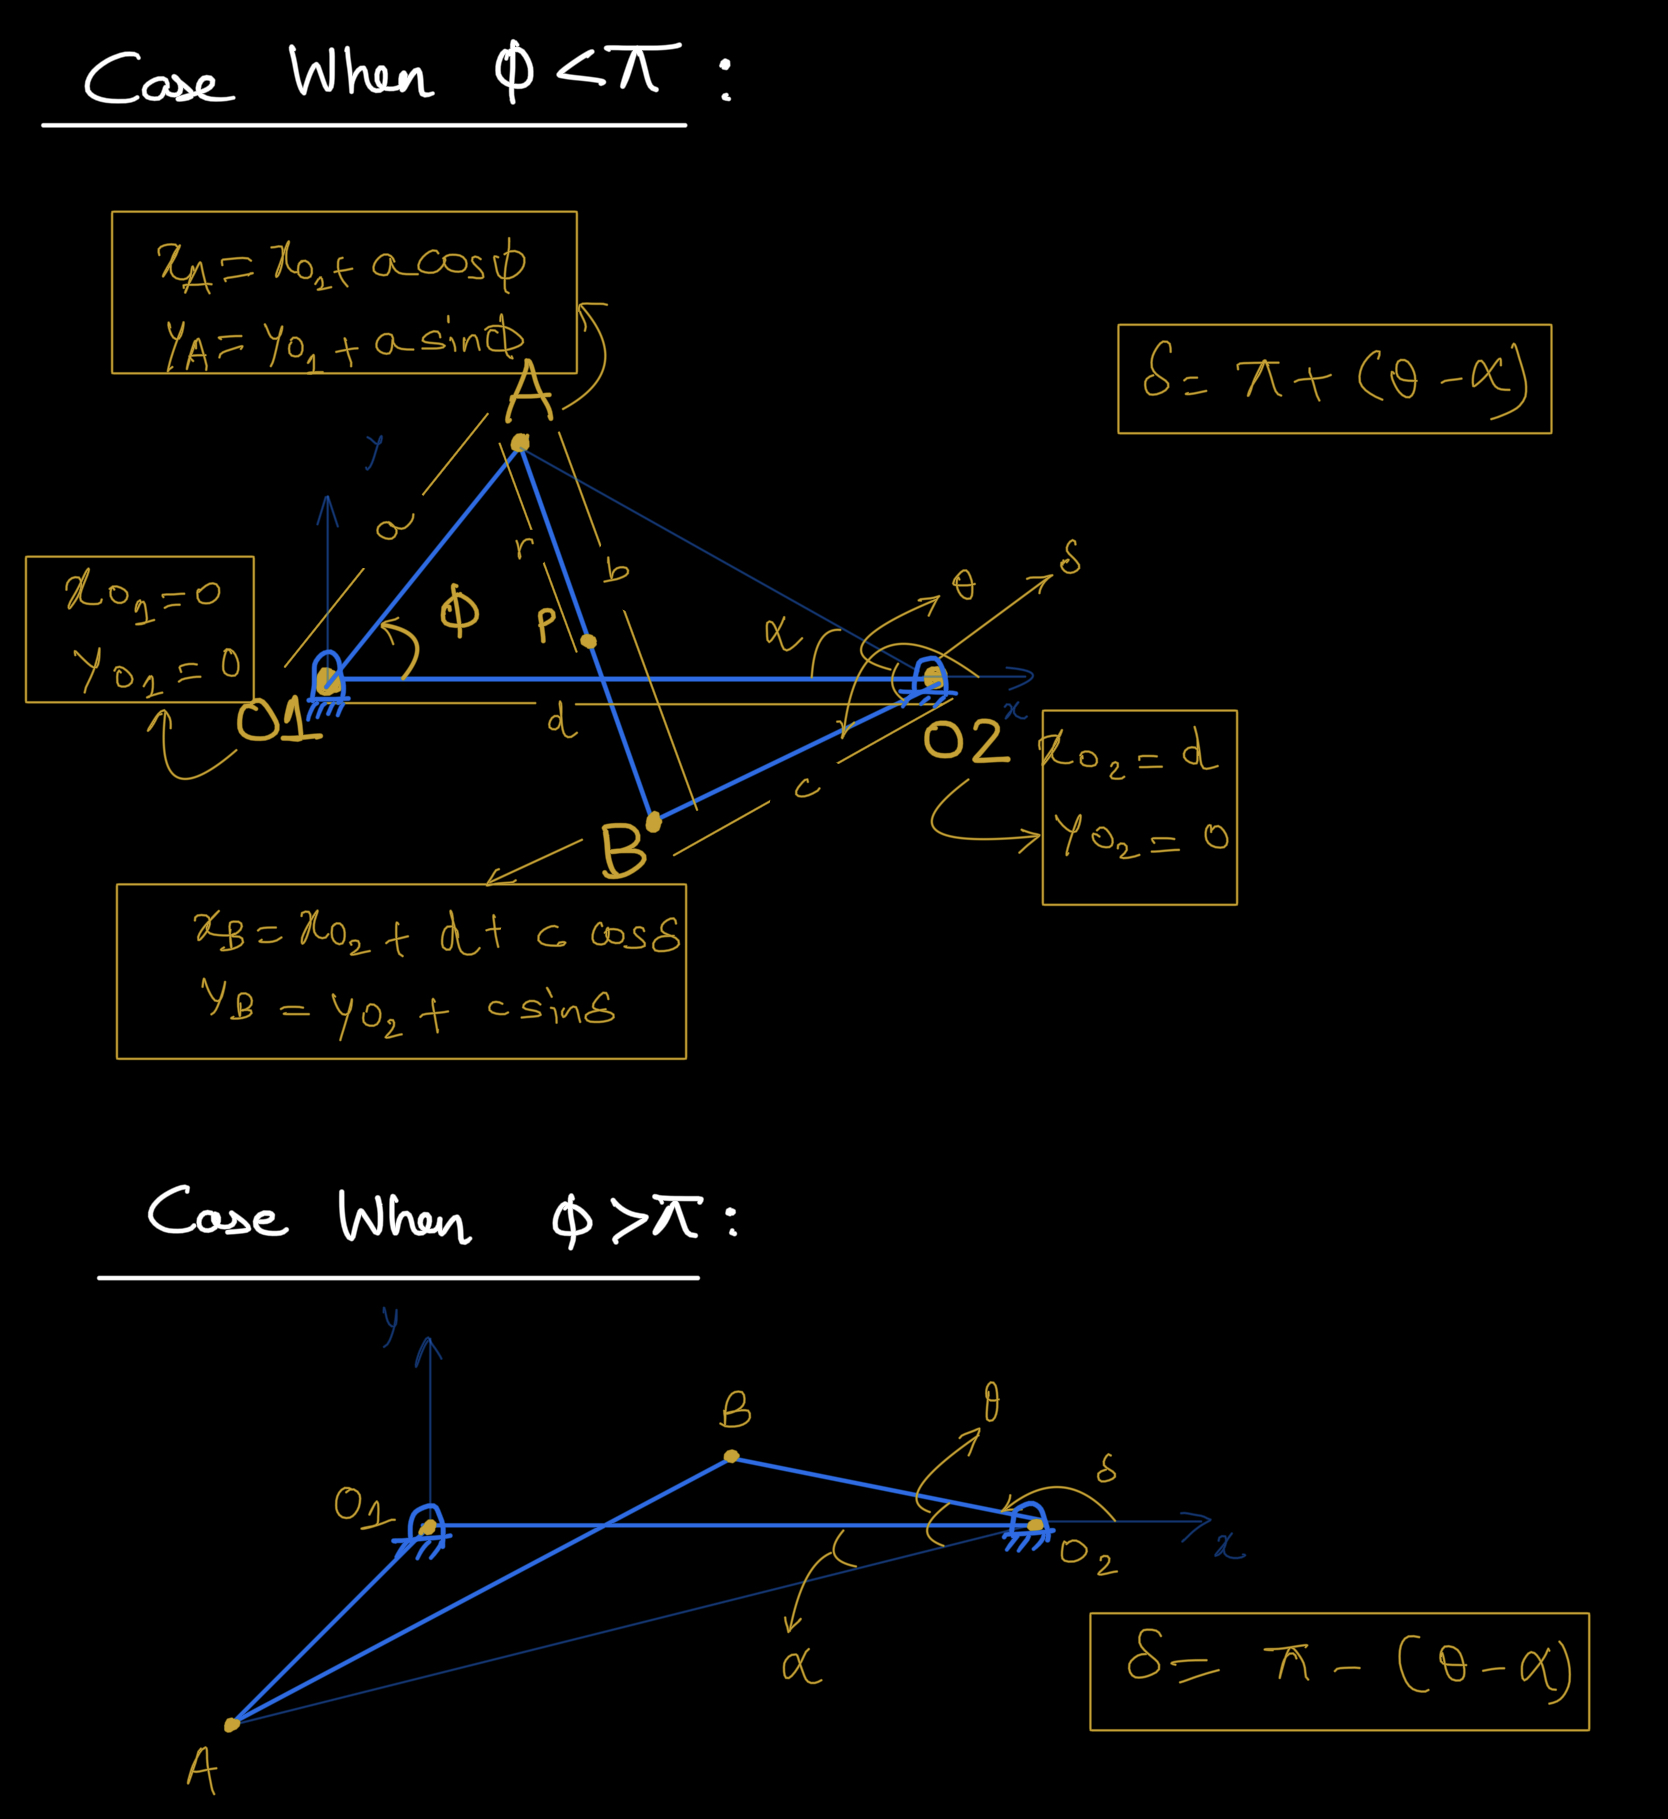 Case When ϕ<π :
x_A = x_O₁ + a cosϕ
y_A = y_O₁ + a sinϕ
δ = π + (θ - α)
A
y
a
r
b
θ
δ
x_O₁ = 0
y_O₁ = 0
ϕ
P
α
O1
d
x
O2
x_O₂ = d
y_O₂ = 0
c
B
x_B = x_O₂ + d + c cosδ
y_B = y_O₂ + c sinδ
Case When ϕ>π :
y
B
θ
δ
O₁
x
O₂
α
δ = π - (θ - α)
A